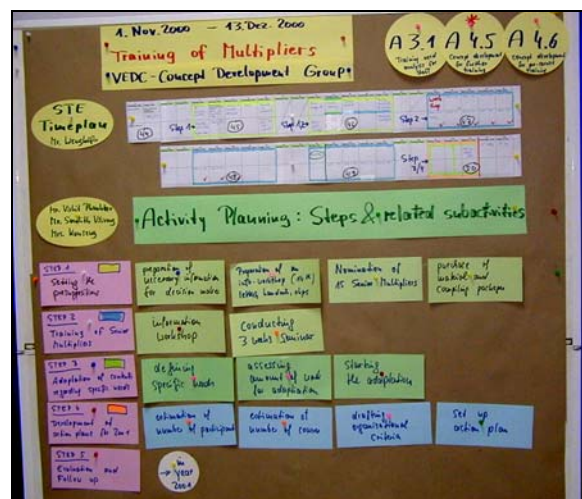 1. Nov. 2000 — 13. Dez. 2000
Training of Multipliers
VEDC-Concept Development Group
A 3.1
Training need
analysis for
A 4.5
Concept development
for further
training
A 4.6
Concept development
for pre-service
training
STE
Timeplan
Mr.
Step 1
Step 1/2
Step 2
Step
3/4
Activity Planning: Steps & related subactivities
Mr.
Mr.
Mrs.
STEP 1
Setting the
presuppositions
preparation of
necessary information
for decision makers
Preparation of an
info-workshop
letters, handouts, clips
Nomination of
15 Senior Multipliers
purchase of
material and
compiling packages
STEP 2
Training of Senior
Multipliers
information
workshop
conducting
3 weeks seminar
STEP 3
Adaptation of contents
regarding specific needs
defining
specific needs
assessing
amount of work
for adaptation
starting
the adaptation
STEP 4
Development of
action plans for 2001
estimation of
number of participants
estimation of
number of courses
drafting
organizational
criteria
Set up
action plan
STEP 5
Evaluation and
Follow up
in
year
2001